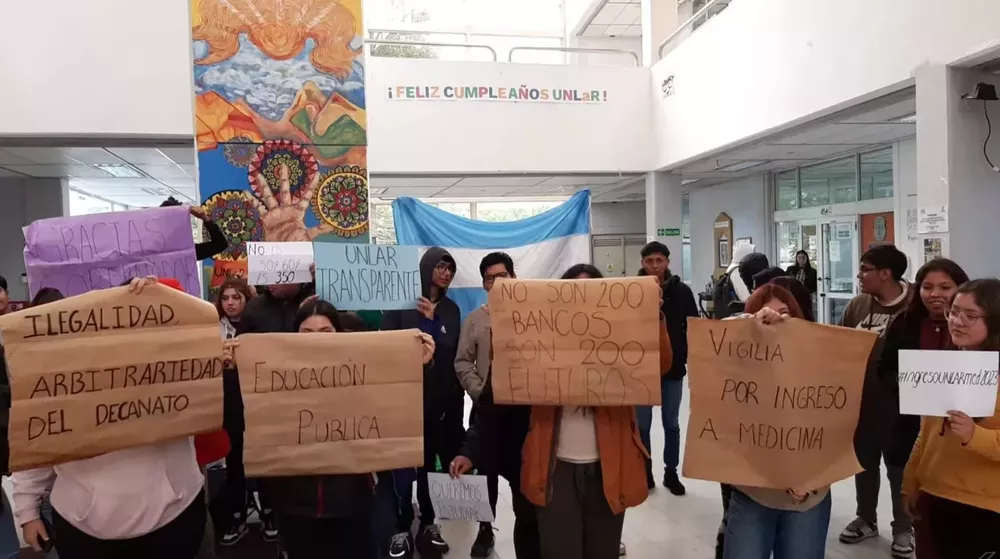 ¡FELIZ CUMPLEAÑOS UNLaR!
GRACIAS
NO SOY 609
SOY 350
UNLAR
TRANSPARENTE
ILEGALIDAD,
ARBITRARIEDAD
DEL DECANATO
EDUCACIÓN
PUBLICA
NO SON 200
BANCOS
SON 200
FUTUROS
VIGILIA
POR INGRESO
A MEDICINA
#ingresoUNLARmed2023
QUEREMOS
ESTUDIAR